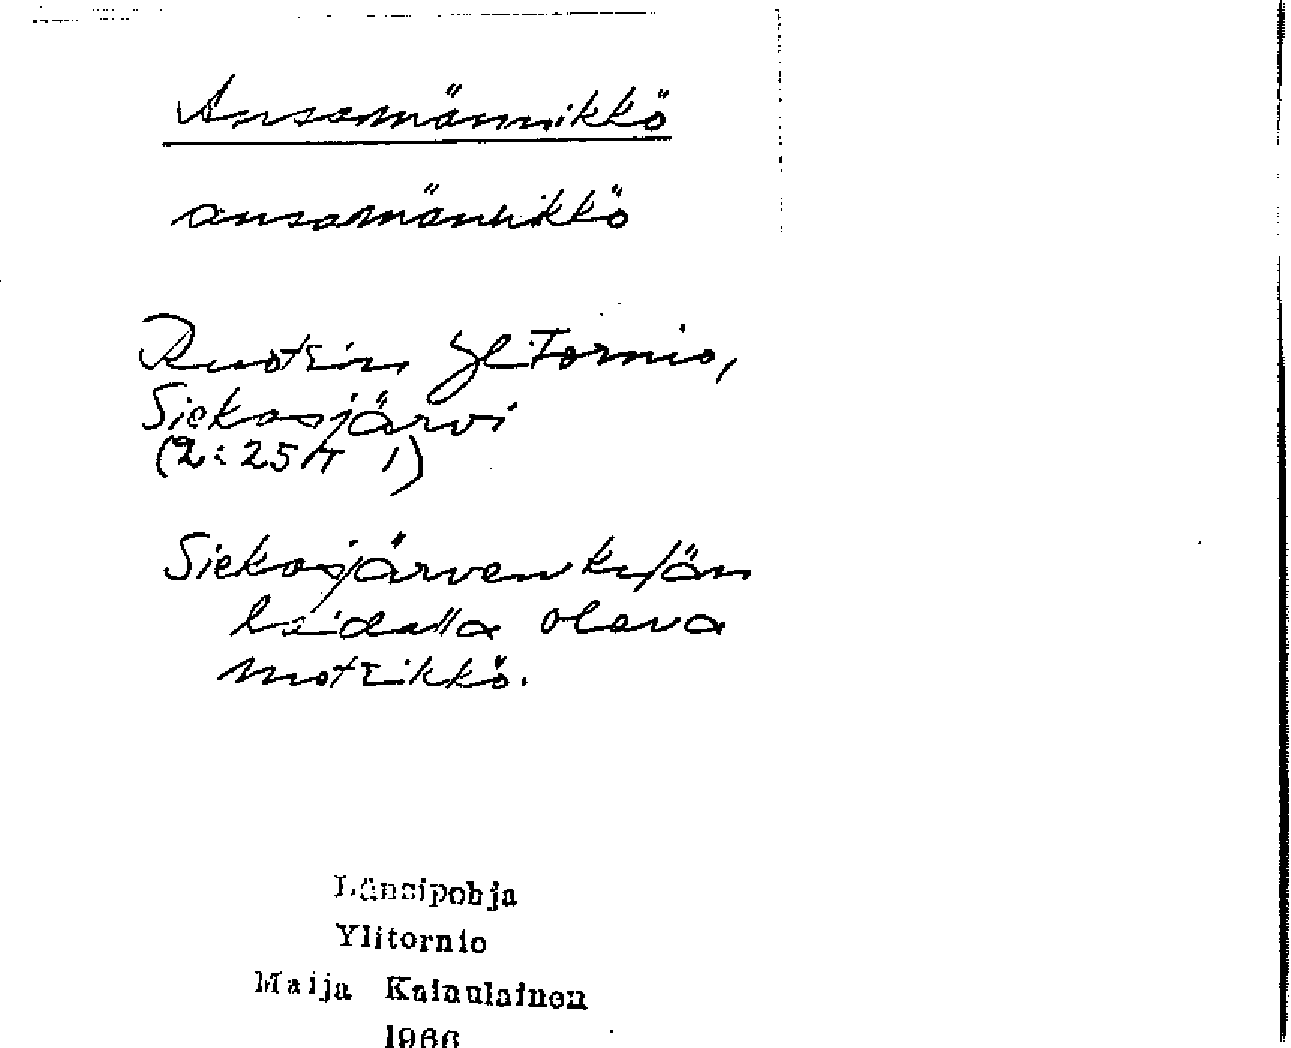 Ansamännikkö
ansamännikkö
Ruotsin Ylitornio,
Siekasjärvi
(2:25 1)
Siekasjärven kylän
laidalla oleva
metsikkö.
Länsipohja
Ylitornio
Maija Kainulainen
1966